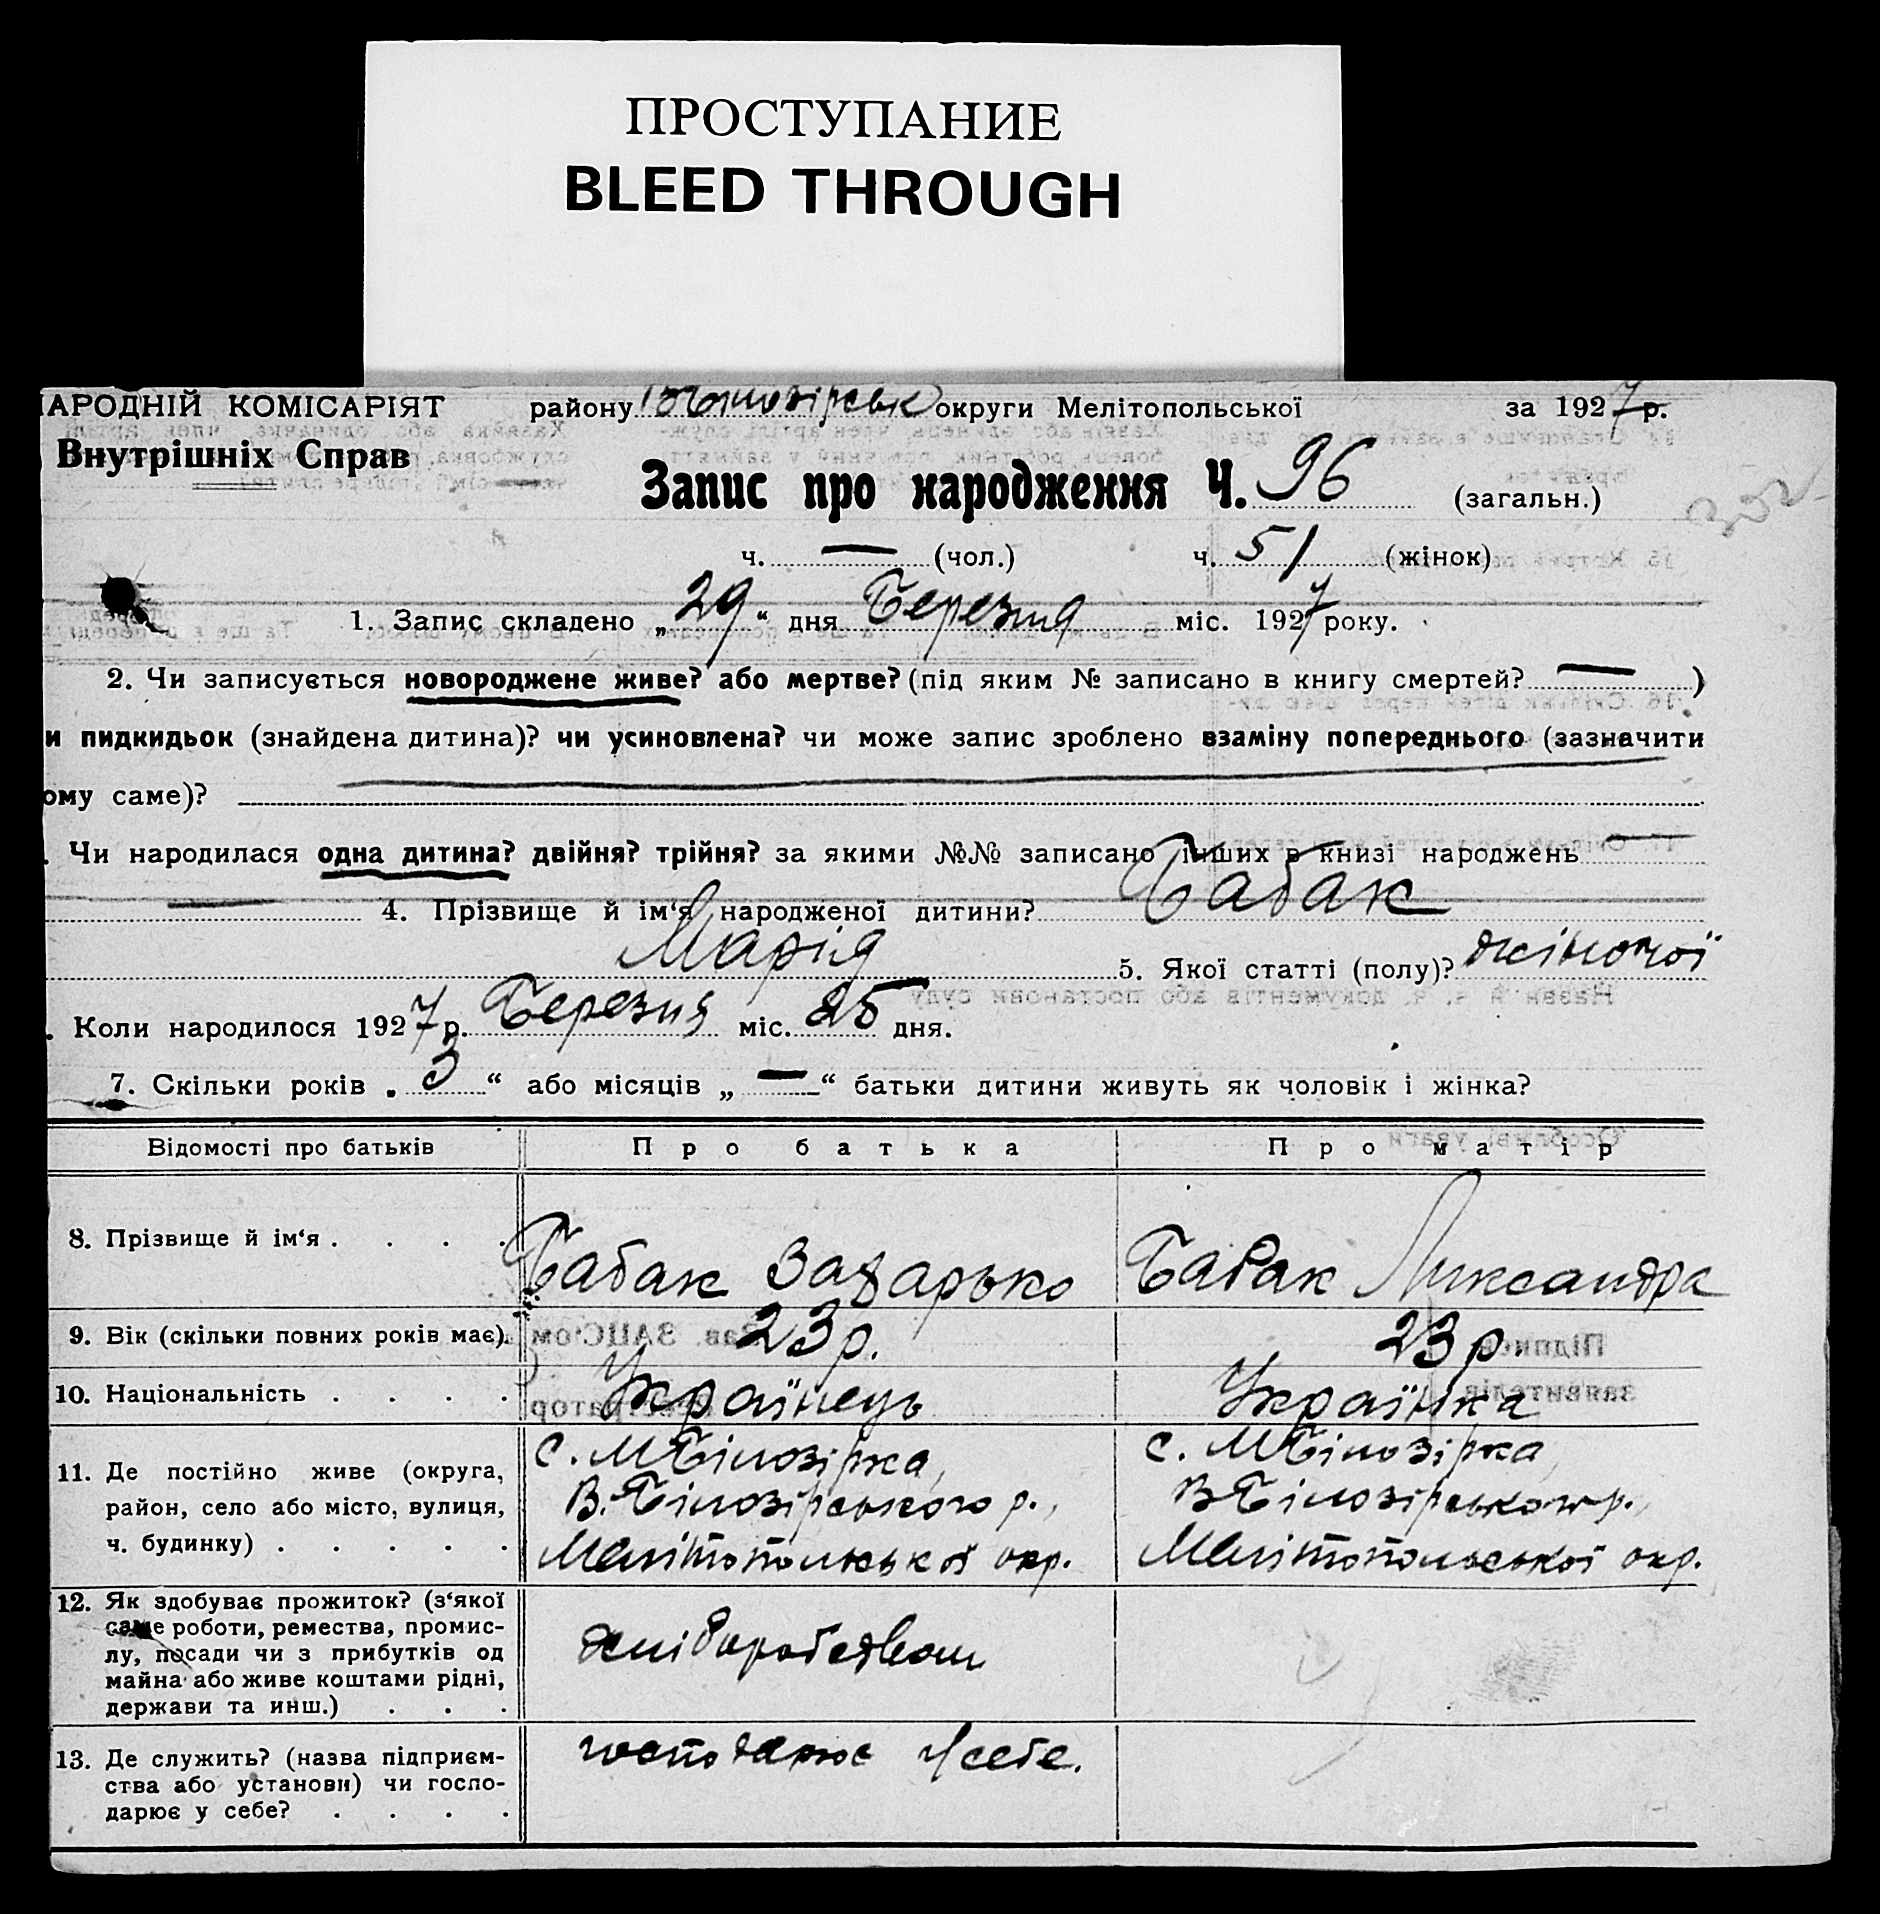 ПРОСТУПАНИЕ
BLEED THROUGH
НАРОДНІЙ КОМІСАРІЯТ району округи Мелітопольської за 1927 р.
Внутрішніх Справ
Запис про народження Ч. 96 (загальн.)
ч. — (чол.) ч. 51 (жінок)
1. Запис складено „29“ дня Березня міс. 1927 року.
2. Чи записується новороджене живе? або мертве? (під яким № записано в книгу смертей? — )
и пидкидьок (знайдена дитина)? чи усиновлена? чи може запис зроблено взаміну попереднього (зазначити
ому саме)?
. Чи народилася одна дитина? двійня? трійня? за якими №№ записано інших в книзі народжень —
— 4. Прізвище й ім‘я народженої дитини? Бабак
Марія 5. Якої статті (полу)? жіночої
. Коли народилося 1927 р. Березня міс. 25 дня.
7. Скільки років „ 3 “ або місяців „ — “ батьки дитини живуть як чоловік і жінка?
Відомості про батьків Про батька Про матір
8. Прізвище й ім‘я . . . . Бабак Захарько Бабак Лиександра
9. Вік (скільки повних років має). 23 р. 23 р.
10. Національність . . . . Українець Українка
11. Де постійно живе (округа, с. МБілозірка, с. МБілозірка,
район, село або місто, вулиця, В.Білозірського р., ВБілозірського р.,
ч. будинку) . . . . . Мелітопольської окр. Мелітопольської окр.
12. Як здобуває прожиток? (з‘якої
саме роботи, ремества, промис-
лу, посади чи з прибутків од хліборобством
майна або живе коштами рідні,
держави та инш.) . . .
13. Де служить? (назва підприєм- господарює у себе.
ства або установи) чи госпо-
дарює у себе? . . . .